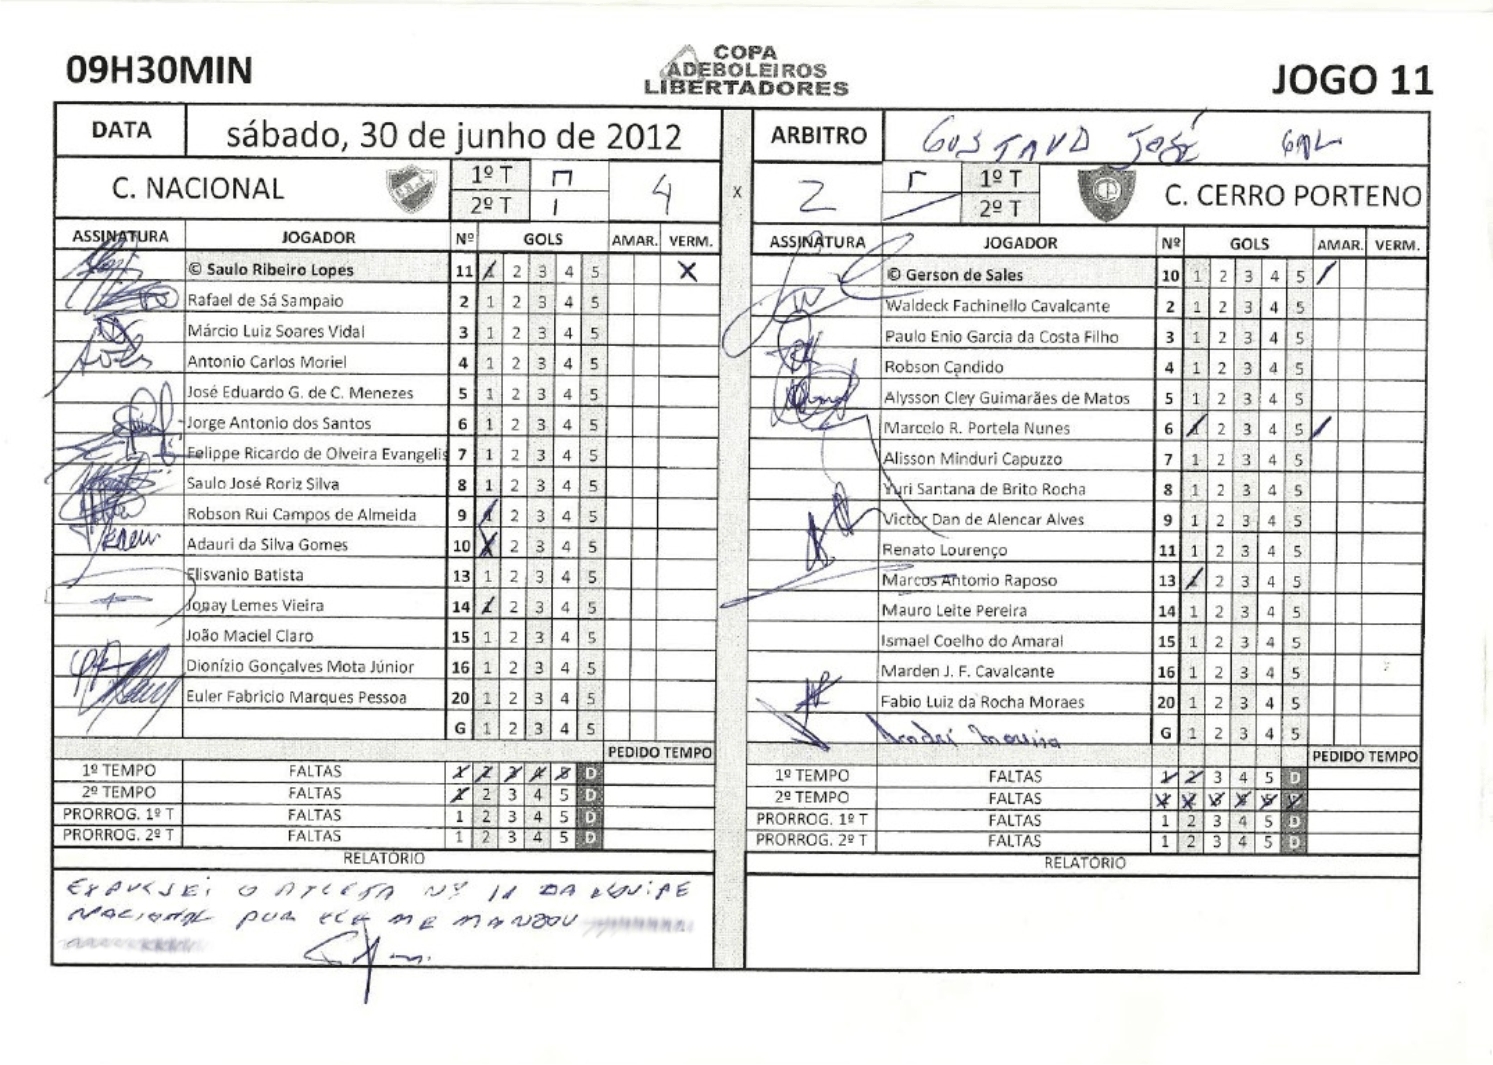 09H30MIN
COPA
ADEBOLEIROS
LIBERTADORES
JOGO 11
DATA sábado, 30 de junho de 2012 ARBITRO GUSTAVO JOSÉ
C. NACIONAL 1º T 4 x 2 1º T C. CERRO PORTENO
2º T 2º T
ASSINATURA JOGADOR Nº GOLS AMAR. VERM. ASSINATURA JOGADOR Nº GOLS AMAR. VERM.
© Saulo Ribeiro Lopes 11 1 2 3 4 5 X © Gerson de Sales 10 1 2 3 4 5 /
Rafael de Sá Sampaio 2 1 2 3 4 5 Waldeck Fachinello Cavalcante 2 1 2 3 4 5
Márcio Luiz Soares Vidal 3 1 2 3 4 5 Paulo Enio Garcia da Costa Filho 3 1 2 3 4 5
Antonio Carlos Moriel 4 1 2 3 4 5 Robson Candido 4 1 2 3 4 5
José Eduardo G. de C. Menezes 5 1 2 3 4 5 Alysson Cley Guimarães de Matos 5 1 2 3 4 5
Jorge Antonio dos Santos 6 1 2 3 4 5 Marcelo R. Portela Nunes 6 1 2 3 4 5 /
Felippe Ricardo de Olveira Evangelis 7 1 2 3 4 5 Alisson Minduri Capuzzo 7 1 2 3 4 5
Saulo José Roriz Silva 8 1 2 3 4 5 Yuri Santana de Brito Rocha 8 1 2 3 4 5
Robson Rui Campos de Almeida 9 1 2 3 4 5 Victor Dan de Alencar Alves 9 1 2 3 4 5
Adauri da Silva Gomes 10 1 2 3 4 5 Renato Lourenço 11 1 2 3 4 5
Elisvanio Batista 13 1 2 3 4 5 Marcos Antonio Raposo 13 1 2 3 4 5
Jonay Lemes Vieira 14 1 2 3 4 5 Mauro Leite Pereira 14 1 2 3 4 5
João Maciel Claro 15 1 2 3 4 5 Ismael Coelho do Amaral 15 1 2 3 4 5
Dionízio Gonçalves Mota Júnior 16 1 2 3 4 5 Marden J. F. Cavalcante 16 1 2 3 4 5
Euler Fabricio Marques Pessoa 20 1 2 3 4 5 Fabio Luiz da Rocha Moraes 20 1 2 3 4 5
G 1 2 3 4 5 André Moura G 1 2 3 4 5
PEDIDO TEMPO PEDIDO TEMPO
1º TEMPO FALTAS 1 2 3 4 5 D 1º TEMPO FALTAS 1 2 3 4 5 D
2º TEMPO FALTAS 1 2 3 4 5 D 2º TEMPO FALTAS 1 2 3 4 5 D
PRORROG. 1º T FALTAS 1 2 3 4 5 D PRORROG. 1º T FALTAS 1 2 3 4 5 D
PRORROG. 2º T FALTAS 1 2 3 4 5 D PRORROG. 2º T FALTAS 1 2 3 4 5 D
RELATÓRIO RELATÓRIO
EXPULSEI O ATLETA Nº 11 DA EQUIPE
NACIONAL POR ELE ME MANDOU